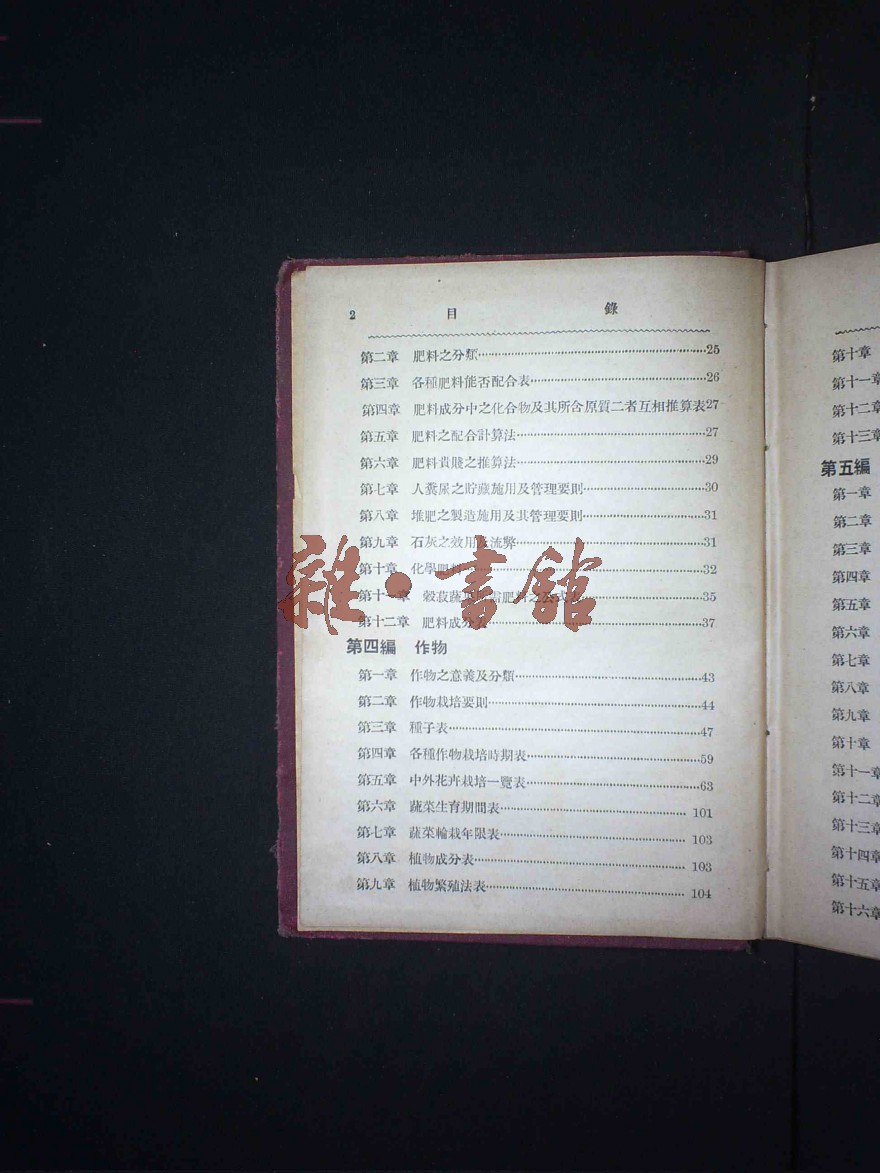 2 目 錄
第二章 肥料之分類 25
第三章 各種肥料能否配合表 26
第四章 肥料成分中之化合物及其所含原質二者互相推算表 27
第五章 肥料之配合計算法 27
第六章 肥料貴賤之推算法 29
第七章 人糞尿之貯藏施用及管理要則 30
第八章 堆肥之製造施用及其管理要則 31
第九章 石灰之效用及流弊 31
第十章 化學肥料 32
第十一章 穀菽蔬 需肥料之公式 35
第十二章 肥料成分表 37
第四編 作物
第一章 作物之意義及分類 43
第二章 作物栽培要則 44
第三章 種子表 47
第四章 各種作物栽培時期表 59
第五章 中外花卉栽培一覽表 63
第六章 蔬菜生育期間表 101
第七章 蔬菜輪栽年限表 103
第八章 植物成分表 103
第九章 植物繁殖法表 104
雜·書館
第十章
第十一章
第十二章
第十三章
第五編
第一章
第二章
第三章
第四章
第五章
第六章
第七章
第八章
第九章
第十章
第十一章
第十二章
第十三章
第十四章
第十五章
第十六章